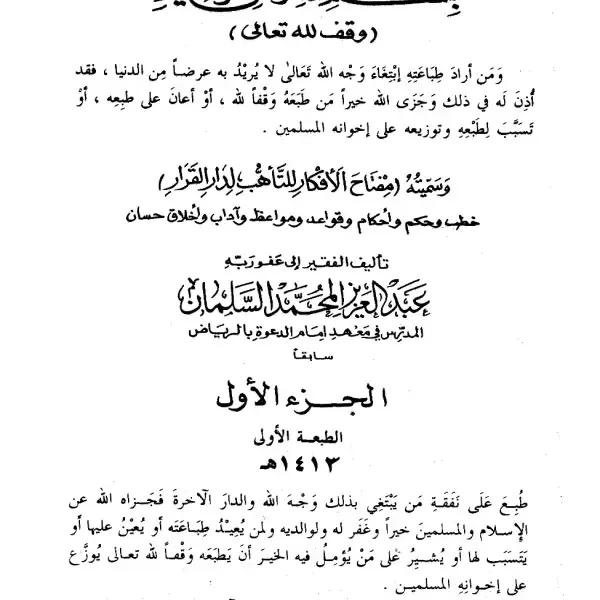 (وقف لله تعالى)
وَمَن أرادَ طِبَاعَتِه إبْتِغَاءَ وَجْه الله تَعَالىٰ لا يُرِيْدُ به عرضاً مِن الدنيا ، فقد
أُذِنَ لَه في ذلك وَجَزَى الله خيراً مَن طَبَعَهُ وَقْفاً لله ، أوْ أعانَ على طبعِه ، أوْ
تَسَبَّبَ لِطَبْعِهِ وتوزيعه على إخوانه المسلمين .
وَسَمَّيتُهُ (مِفْتَاحَ الأَفْكَارِ لِلتَّأَهُّبِ لِدَارِ القَرَارِ)
خطب وحكم وأحكام وقواعد ومواعظ وآداب وأخلاق حسان
تأليف الفقير إلى عفو ربّه
عَبْد العَزيز المحَمَّد السَّلمان
المدرّس في مَعْهد إمَام الدعوة بالرياض
سابقاً
الجزء الأول
الطبعة الأولى
١٤١٣هـ
طُبِعَ عَلَى نَفَقَةِ مَن يَبْتَغِي بذلك وَجْهَ الله والدارَ الآخرةَ فَجَزاه الله عن
الإسلام والمسلمينَ خيراً وغَفَر له ولوالديه ولمن يُعِيْدُ طِبَاعَتَه أو يُعْيْنُ عليها أو
يَتَسَبَب لها أو يُشيرُ على مَنْ يُؤمِلُ فيه الخيرَ أنْ يَطبَعَه وَقْفاً لله تعالى يُوزَّع
على إخوانِهِ المسلمين .